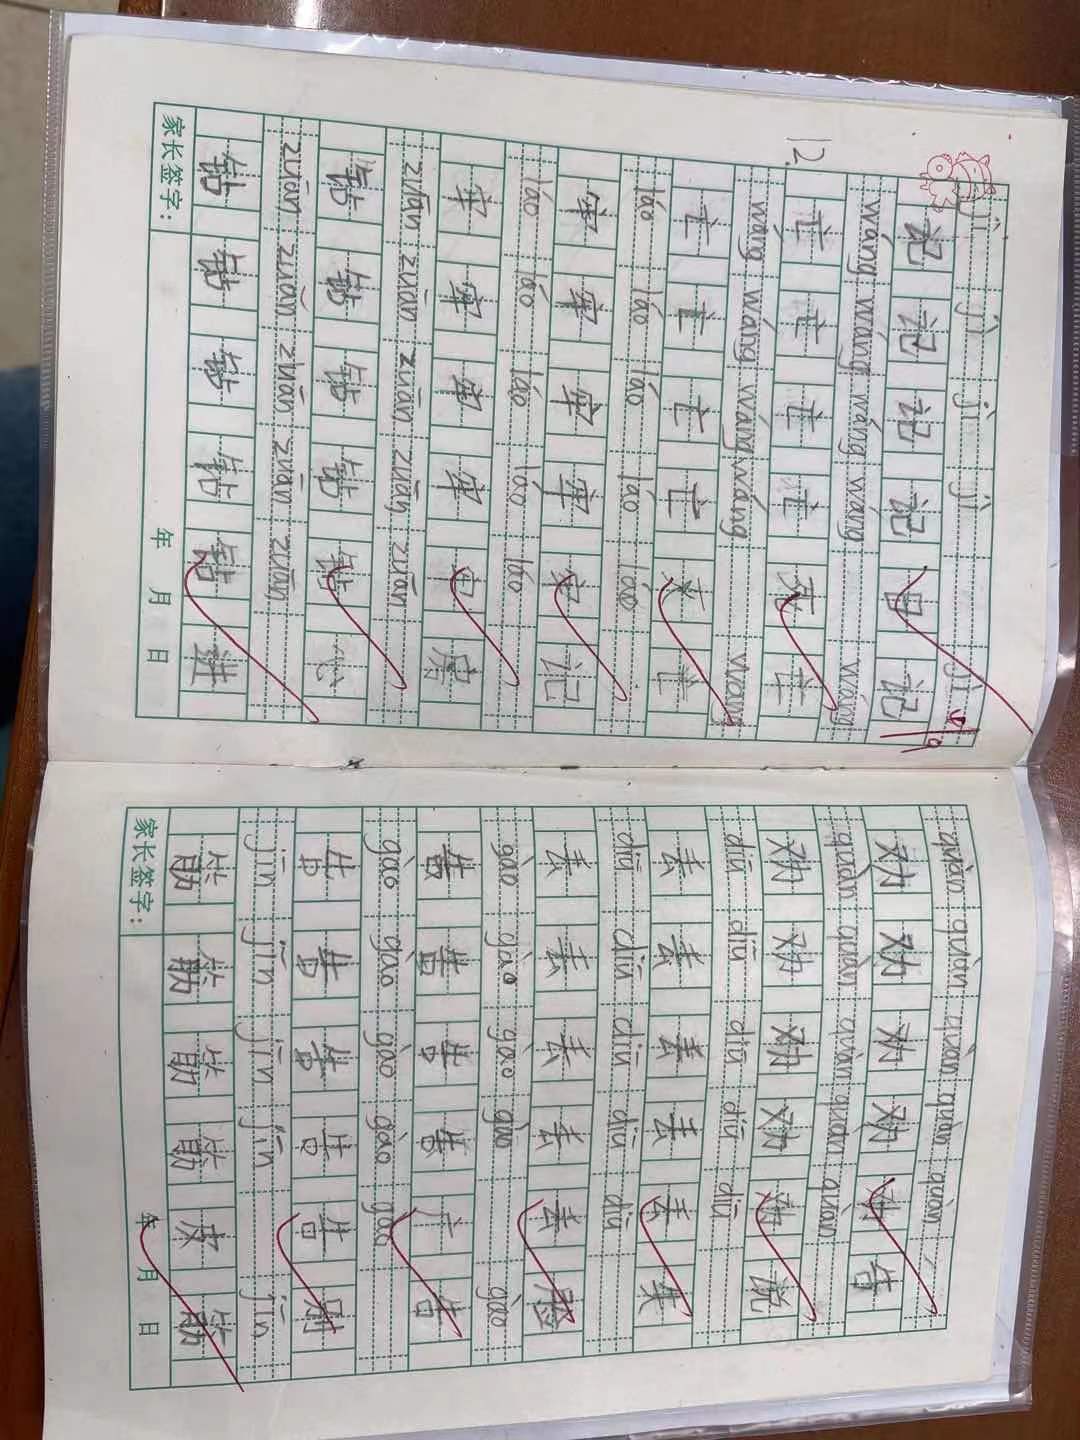 jì jì jì jì jì
记 记 记 记 日 记
wáng wáng wáng wáng wáng
12.
亡 亡 亡 亡 死 亡
wáng wáng wáng wáng wáng
亡 亡 亡 亡 亡
láo láo láo láo láo
牢 牢 牢 牢 牢 记
láo láo láo láo láo
牢 牢 牢 牢 牢 房
zuān zuān zuān zuān zuān
钻 钻 钻 钻 钻 心
zuān zuān zuān zuān zuān
钻 钻 钻 钻 钻 进
家长签字： 年 月 日
quàn quàn quàn quàn quàn
劝 劝 劝 劝 劝 告
quàn quàn quàn quàn quàn
劝 劝 劝 劝 劝 说
diū diū diū diū diū
丢 丢 丢 丢 丢 失
diū diū diū diū diū
丢 丢 丢 丢 丢 脸
gào gào gào gào gào
告 告 告 告 广 告
gào gào gào gào gào
告 告 告 告 告 别
jīn jīn jīn jīn jīn
筋 筋 筋 筋 皮 筋
家长签字： 年 月 日